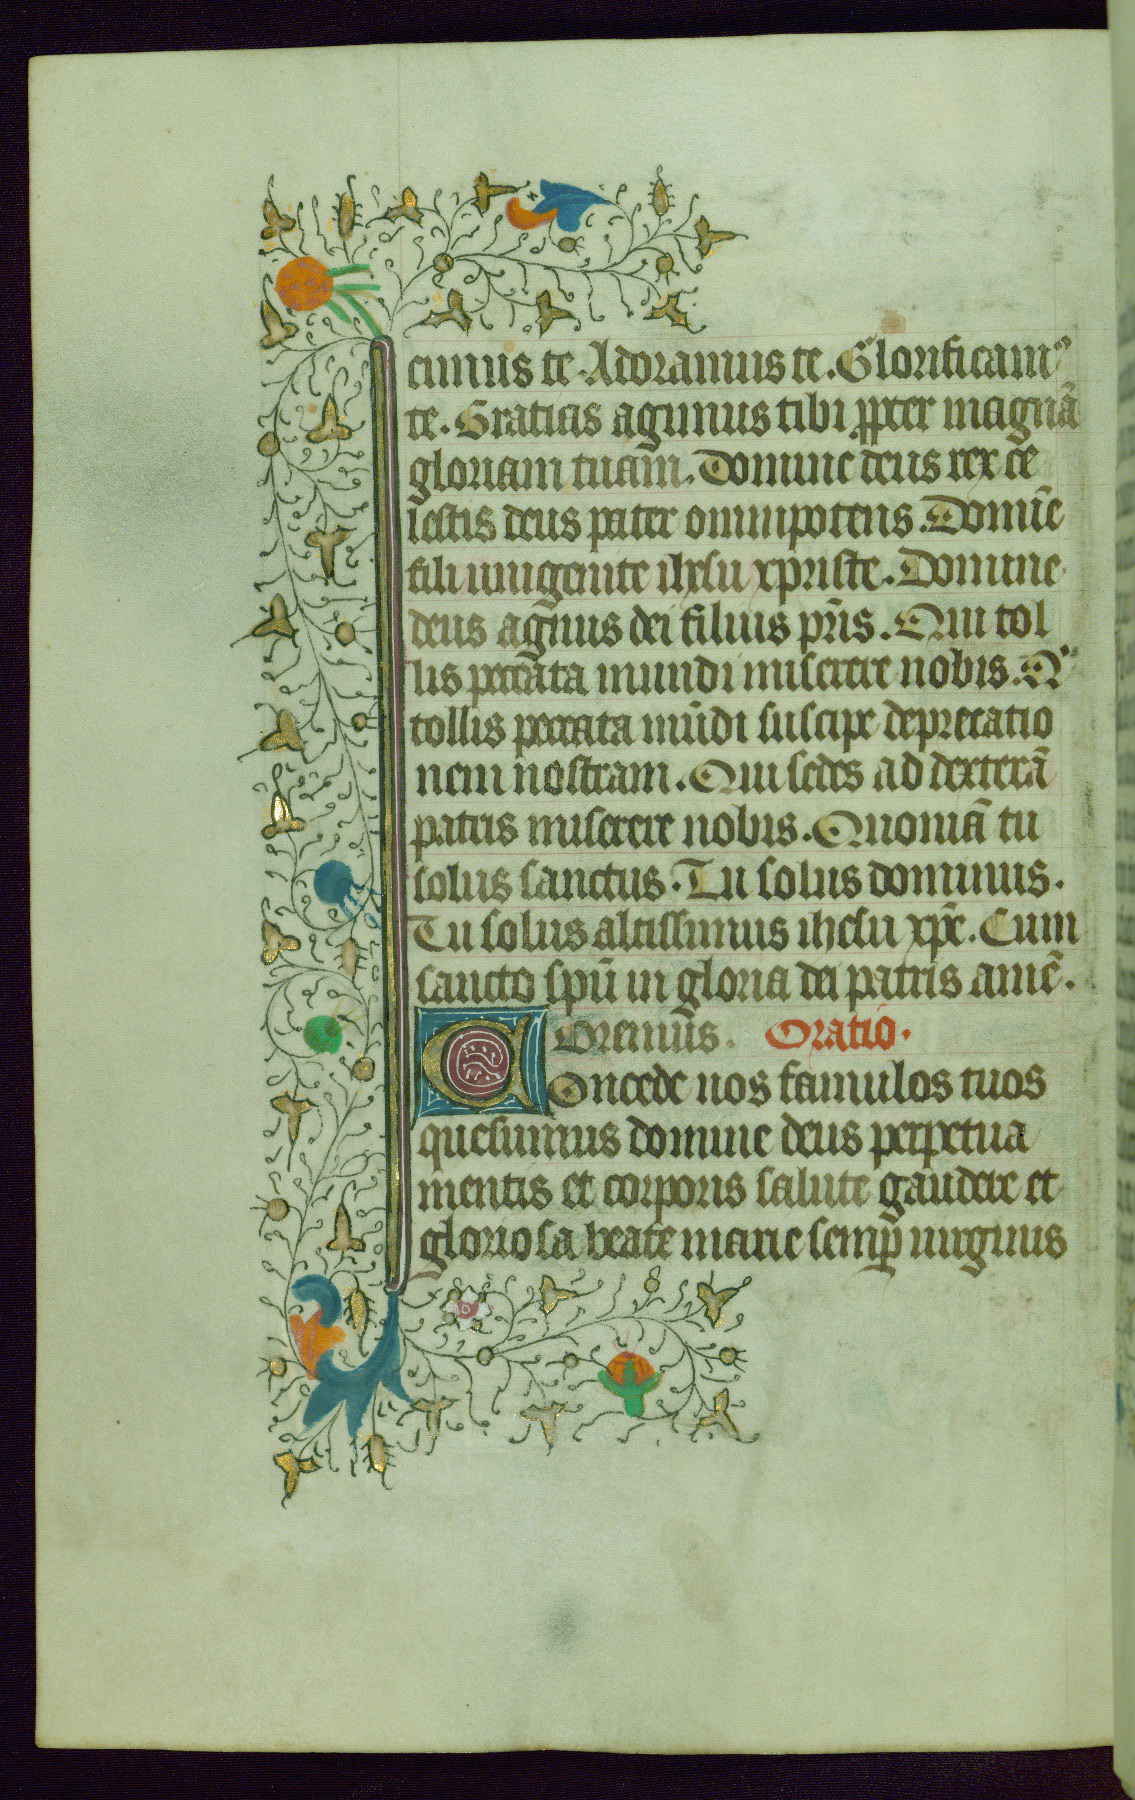 cimus te. Adoramus te. Glorificamꝰ
te. Gratias agimus tibi ꝓpter magnā
gloriam tuam. Domine deus rex ce
lestis deus pater omnipotens. Domīe
fili unigenite ihesu xpriste. Domine
deus agnus dei filius pr̄is. Qui tol
lis peccata mundi miserere nobis. Qⁱ
tollis peccata mūdi suscipe deprecatio
nem nostram. Qui sedes ad dexterā
patris miserere nobis. Quoniā tu
solus sanctus. Tu solus dominus.
Tu solus altissimus ihesu xp̄e. Cum
sancto spū in gloria dei patris amē.
Oremus. Oratio.
Concede nos famulos tuos
quesumus domine deus perpetua
mentis et corporis salute gaudere et
gloriosa beate marie semꝑ uirginis